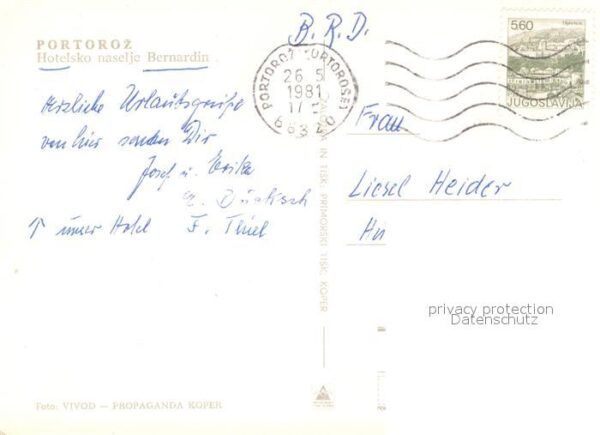 B.R.D.
PORTOROŽ
Hotelsko naselje Bernardin
Herzliche Urlaubsgrüße
von hier senden Dir
Josef u. Erika
↑ unser Hotel F. Thiel
PORTOROŽ PORTOROSE
26. 5
1981
17
66320
5.60
JUGOSLAVIJA
Frau
Liesel Heider
TISK. PRIMORSKI TISK, KOPER
privacy protection
Datenschutz
Foto: VIVOD — PROPAGANDA KOPER